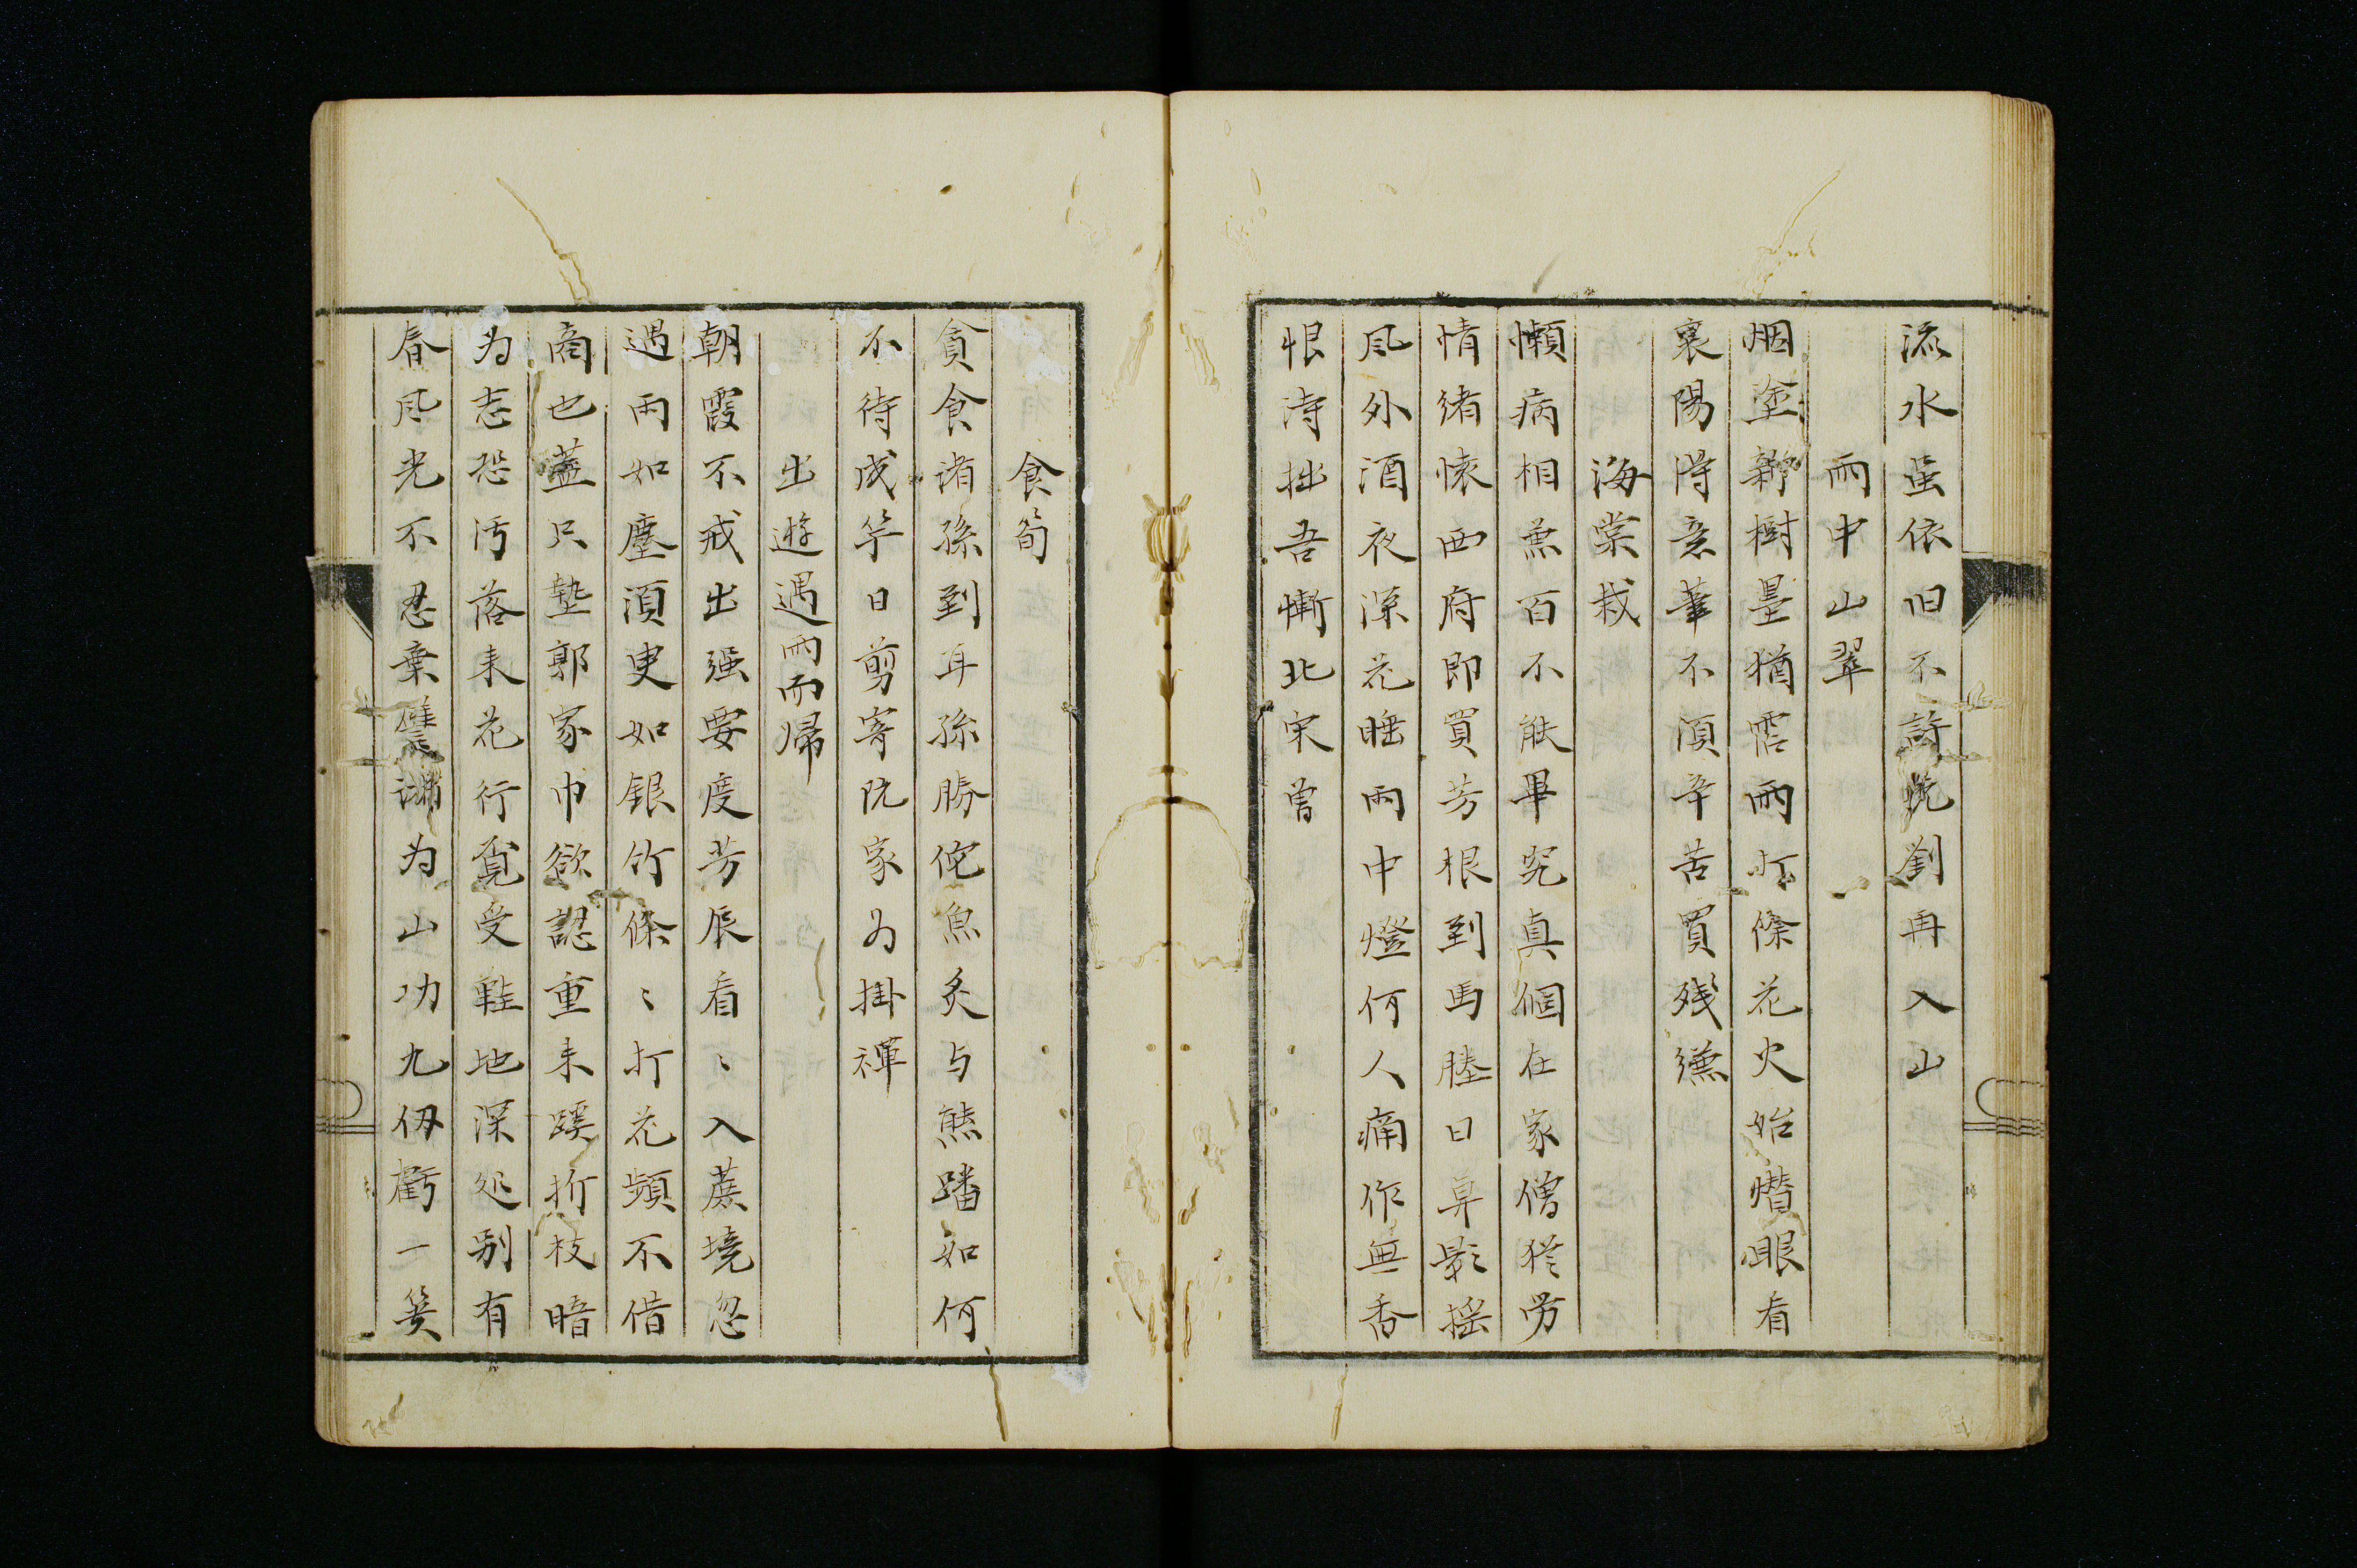 流水虽依旧不許晩劉再入山
雨中山翠
烟塗新樹墨猶霑雨打條花火始熸眼看
襄陽得意筆不須辛苦買殘縑
海棠栽
懶病相兼百不能畢究真個在家僧猶労
情緒懐西府即買芳根到馬塍日算影揺
風外酒夜深花睡雨中燈何人痛作無香
恨詩拙吾慚北宋曽
食筍
貪食诸孫到耳孫勝佗魚炙与熊蹯如何
不待成竿日剪寄阮家为掛褌
出遊遇雨而帰
朝霞不戒出强要度芳辰看〻入蔗境忽
遇雨如塵須臾如銀竹條〻打花頻不借
商也蓋只墊郭家巾欲認重来蹊折枝暗
为志恐汚落来花行覓受鞋地深処别有
春風光不忍棄讐謝为山功九仭虧一簣